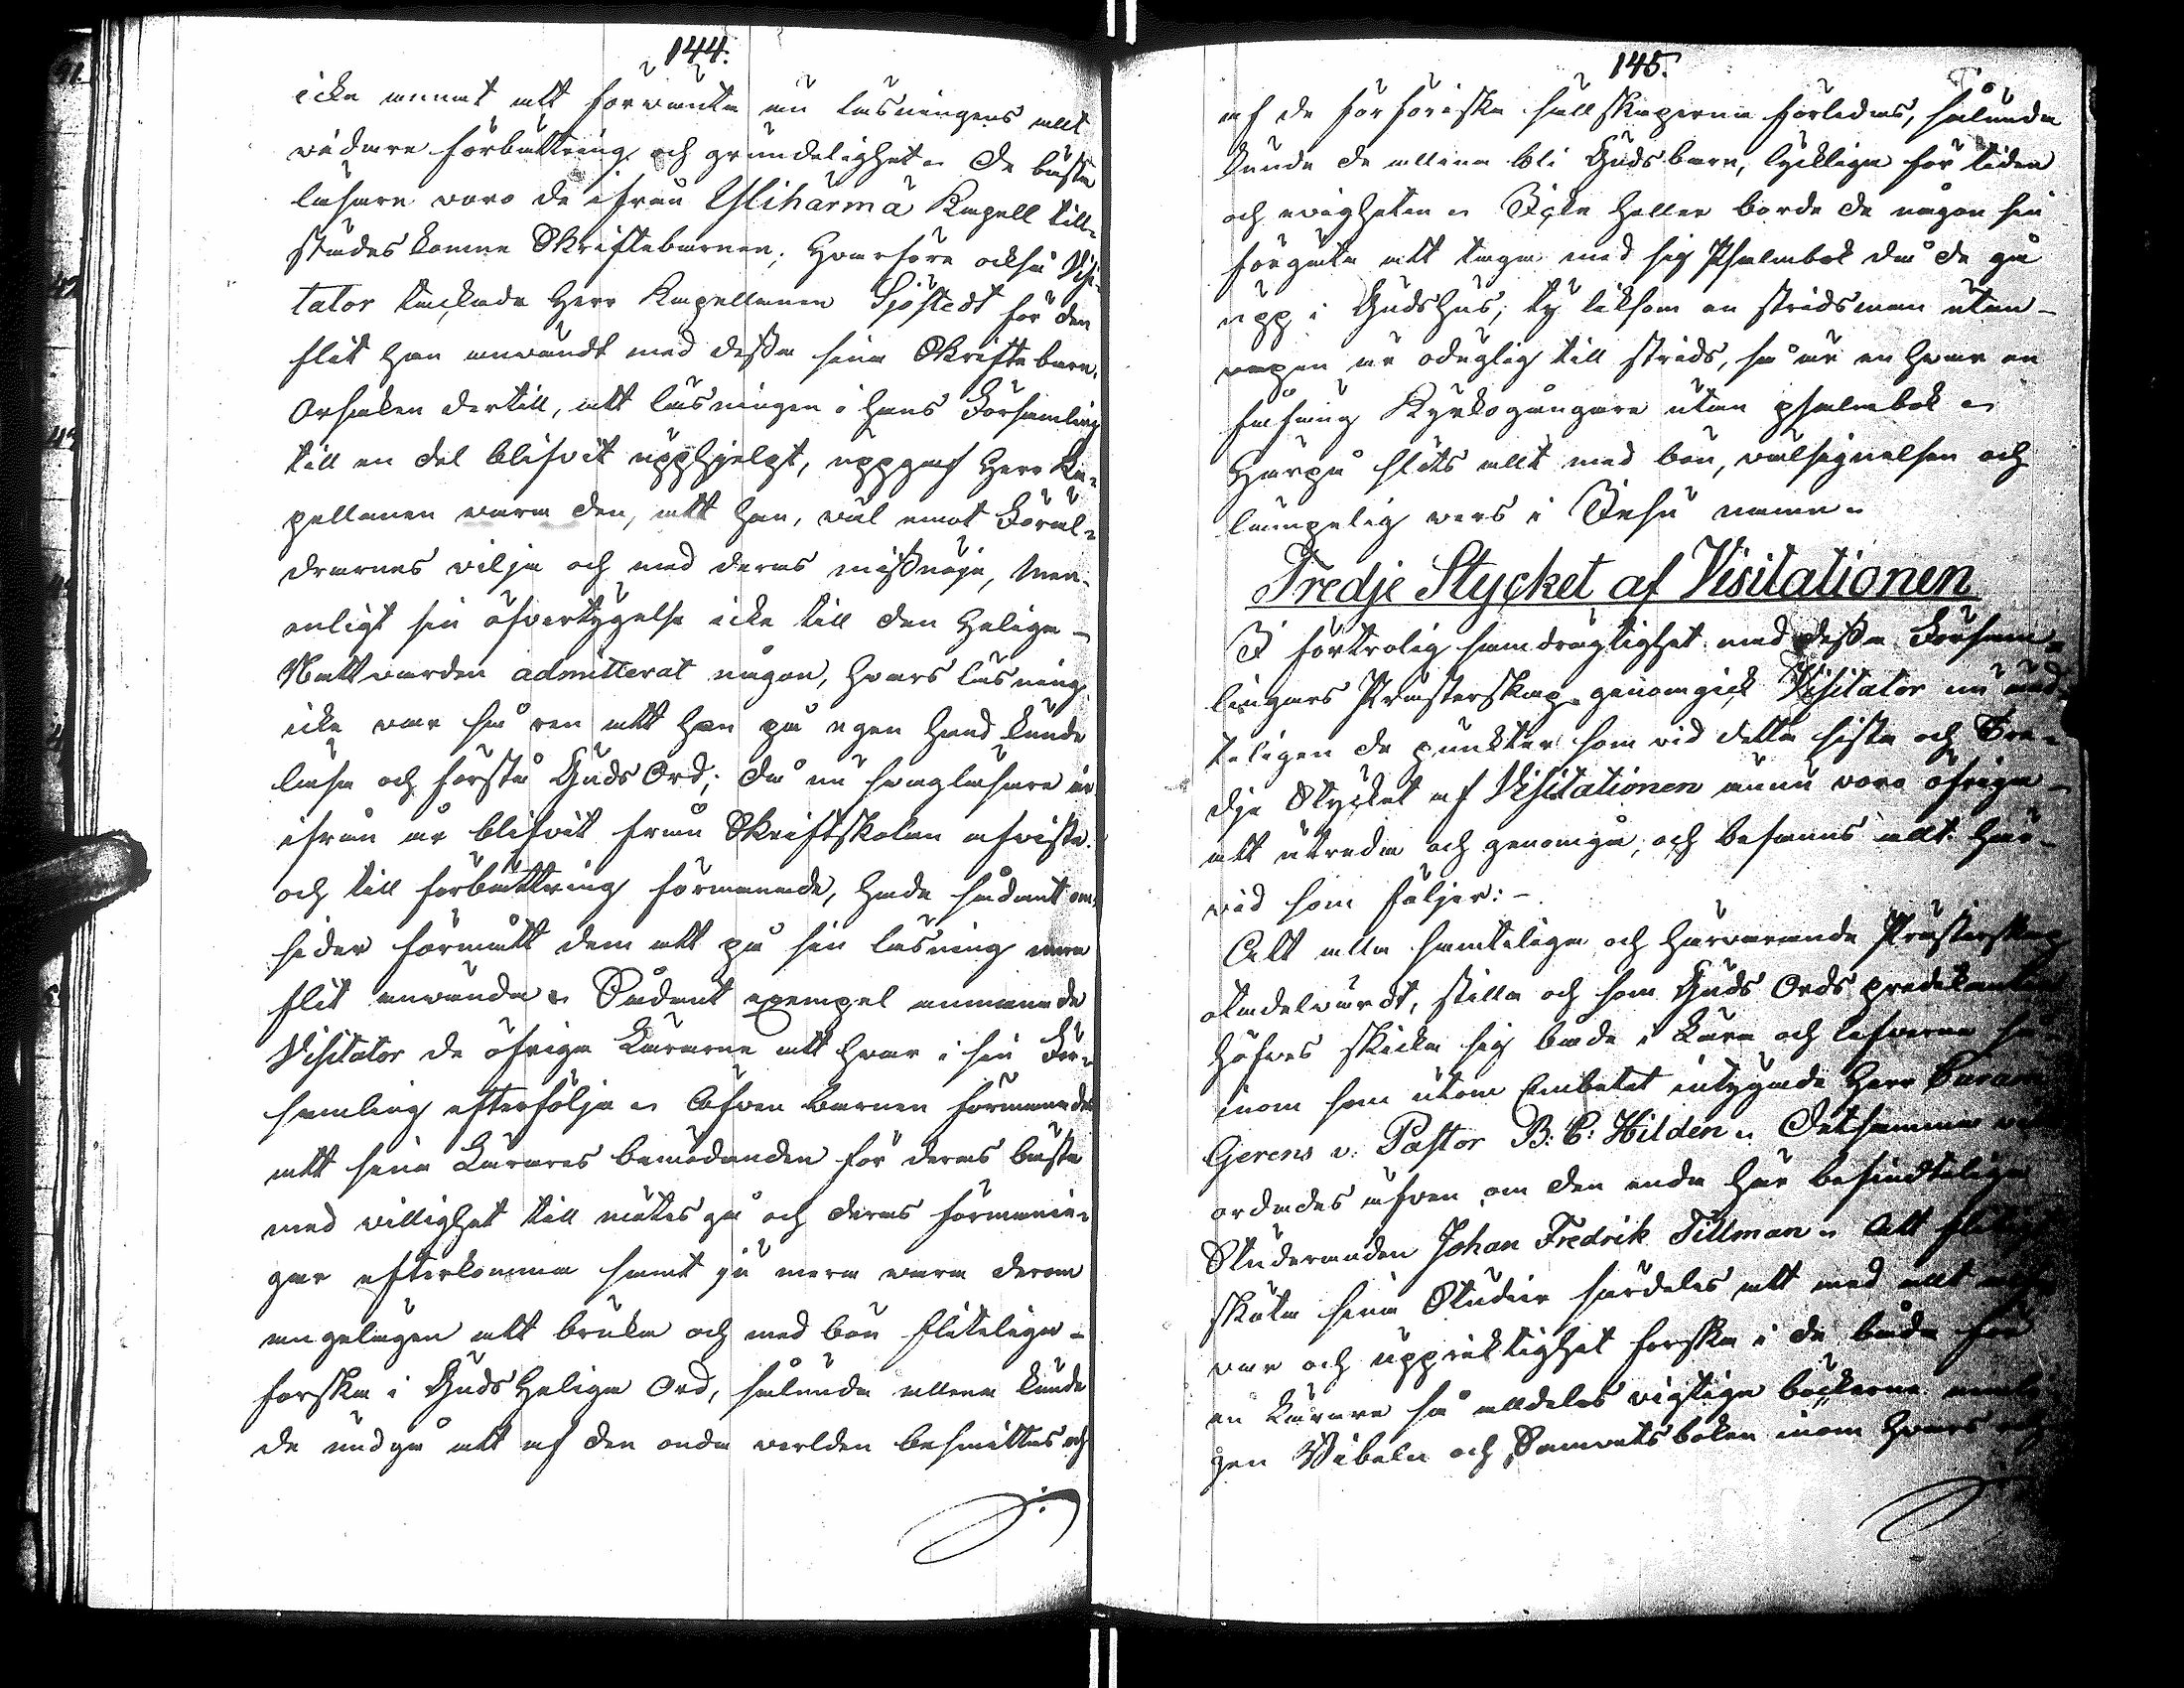 144.
icke annat att förvänta än läsningens allt
vidare förbättring och grundelighet. De bäste
läsare voro de ifrån Ylihärmä Kapell till-
städes komne Skriftebarnen; Hvarföre också Visi-
tator tackade Herr Kapellanen Sjöstedt för den
flit han användt med desse sine Skriftebarn.
Orsaken dertill, att läsningen i hans Församling
till en del blifvit upphjelpt, uppgaf Herr Ka-
pellanen vara den, att han, väl emot Föräl-
drarnes vilja och med deras missnöje, men
enligt sin öfvertygelse icke till den Heliga
Nattvarden admitterat någon, hvars läsning
icke var så ren att han på egen hand kunde
läsa och förstå Guds Ord; då nu svagläsare år
ifrån år blifvit från Skriftskolan afviste
och till förbättring förmanade, hade sådant om-
sider förmått dem att på sin läsning mera
flit använda. Sådant exempel anmanade
Visitator de öfriga Lärarne att hvar i sin För-
samling efterfölja. Äfven barnen förmanades
att sina Lärares bemödanden för deras bästa
med villighet till mötes gå och deras förmanin-
gar efterkomma samt ju mera vara derom
angelägen att bruka och med bön fliteligen
forska i Guds Heliga Ord, sålunda allena kunde
de undgå att af den onda verlden besmittas och
145.
af de förföriska sällskaperne förledas, sålunda
kunde de allena bli Guds barn, lycklige för tiden
och evigheten. Icke heller borde de någonsin
förgäta att taga med sig Psalmbok då de gå
upp i Guds hus; ty liksom en stridsman utan
vapen är oduglig till strids, så är en hvar en
fåfäng Kyrkogångare utan psalmbok.
Härpå slöts allt med bön, välsignelsen och
lämpelig vers i Jesu namn.
Tredje Stycket af Visitationen
I förtrolig samdrägtighet med desse Försam-
lingars Prästerskap genomgick Visitator nu
teligen de punkter som vid detta sista och Tre-
dje Stycket af Visitationen ännu voro öfriga
att utreda och genomgå, och befanns allt här-
vid som följer:
Att alla samtelige och härvarande Prästerskap
otadelvärdt, stilla och som Guds Ords predikanter
höfves skicka sig både i Lära och lefverne så
inom som utom Embetet intygade Herr Curam
Gerens v. Pastor B: C: Hildén. Detsamma
ordades äfven om den enda här befindtelige
Studeranden Johan Fredrik Tillman. Att flitigt
sköta sina Studier särdeles att med allt
var och uppriktighet forska i de både för
en Lärare så alldeles vigtiga böckerne
gen Bibeln och Samvetsboken inom hvars